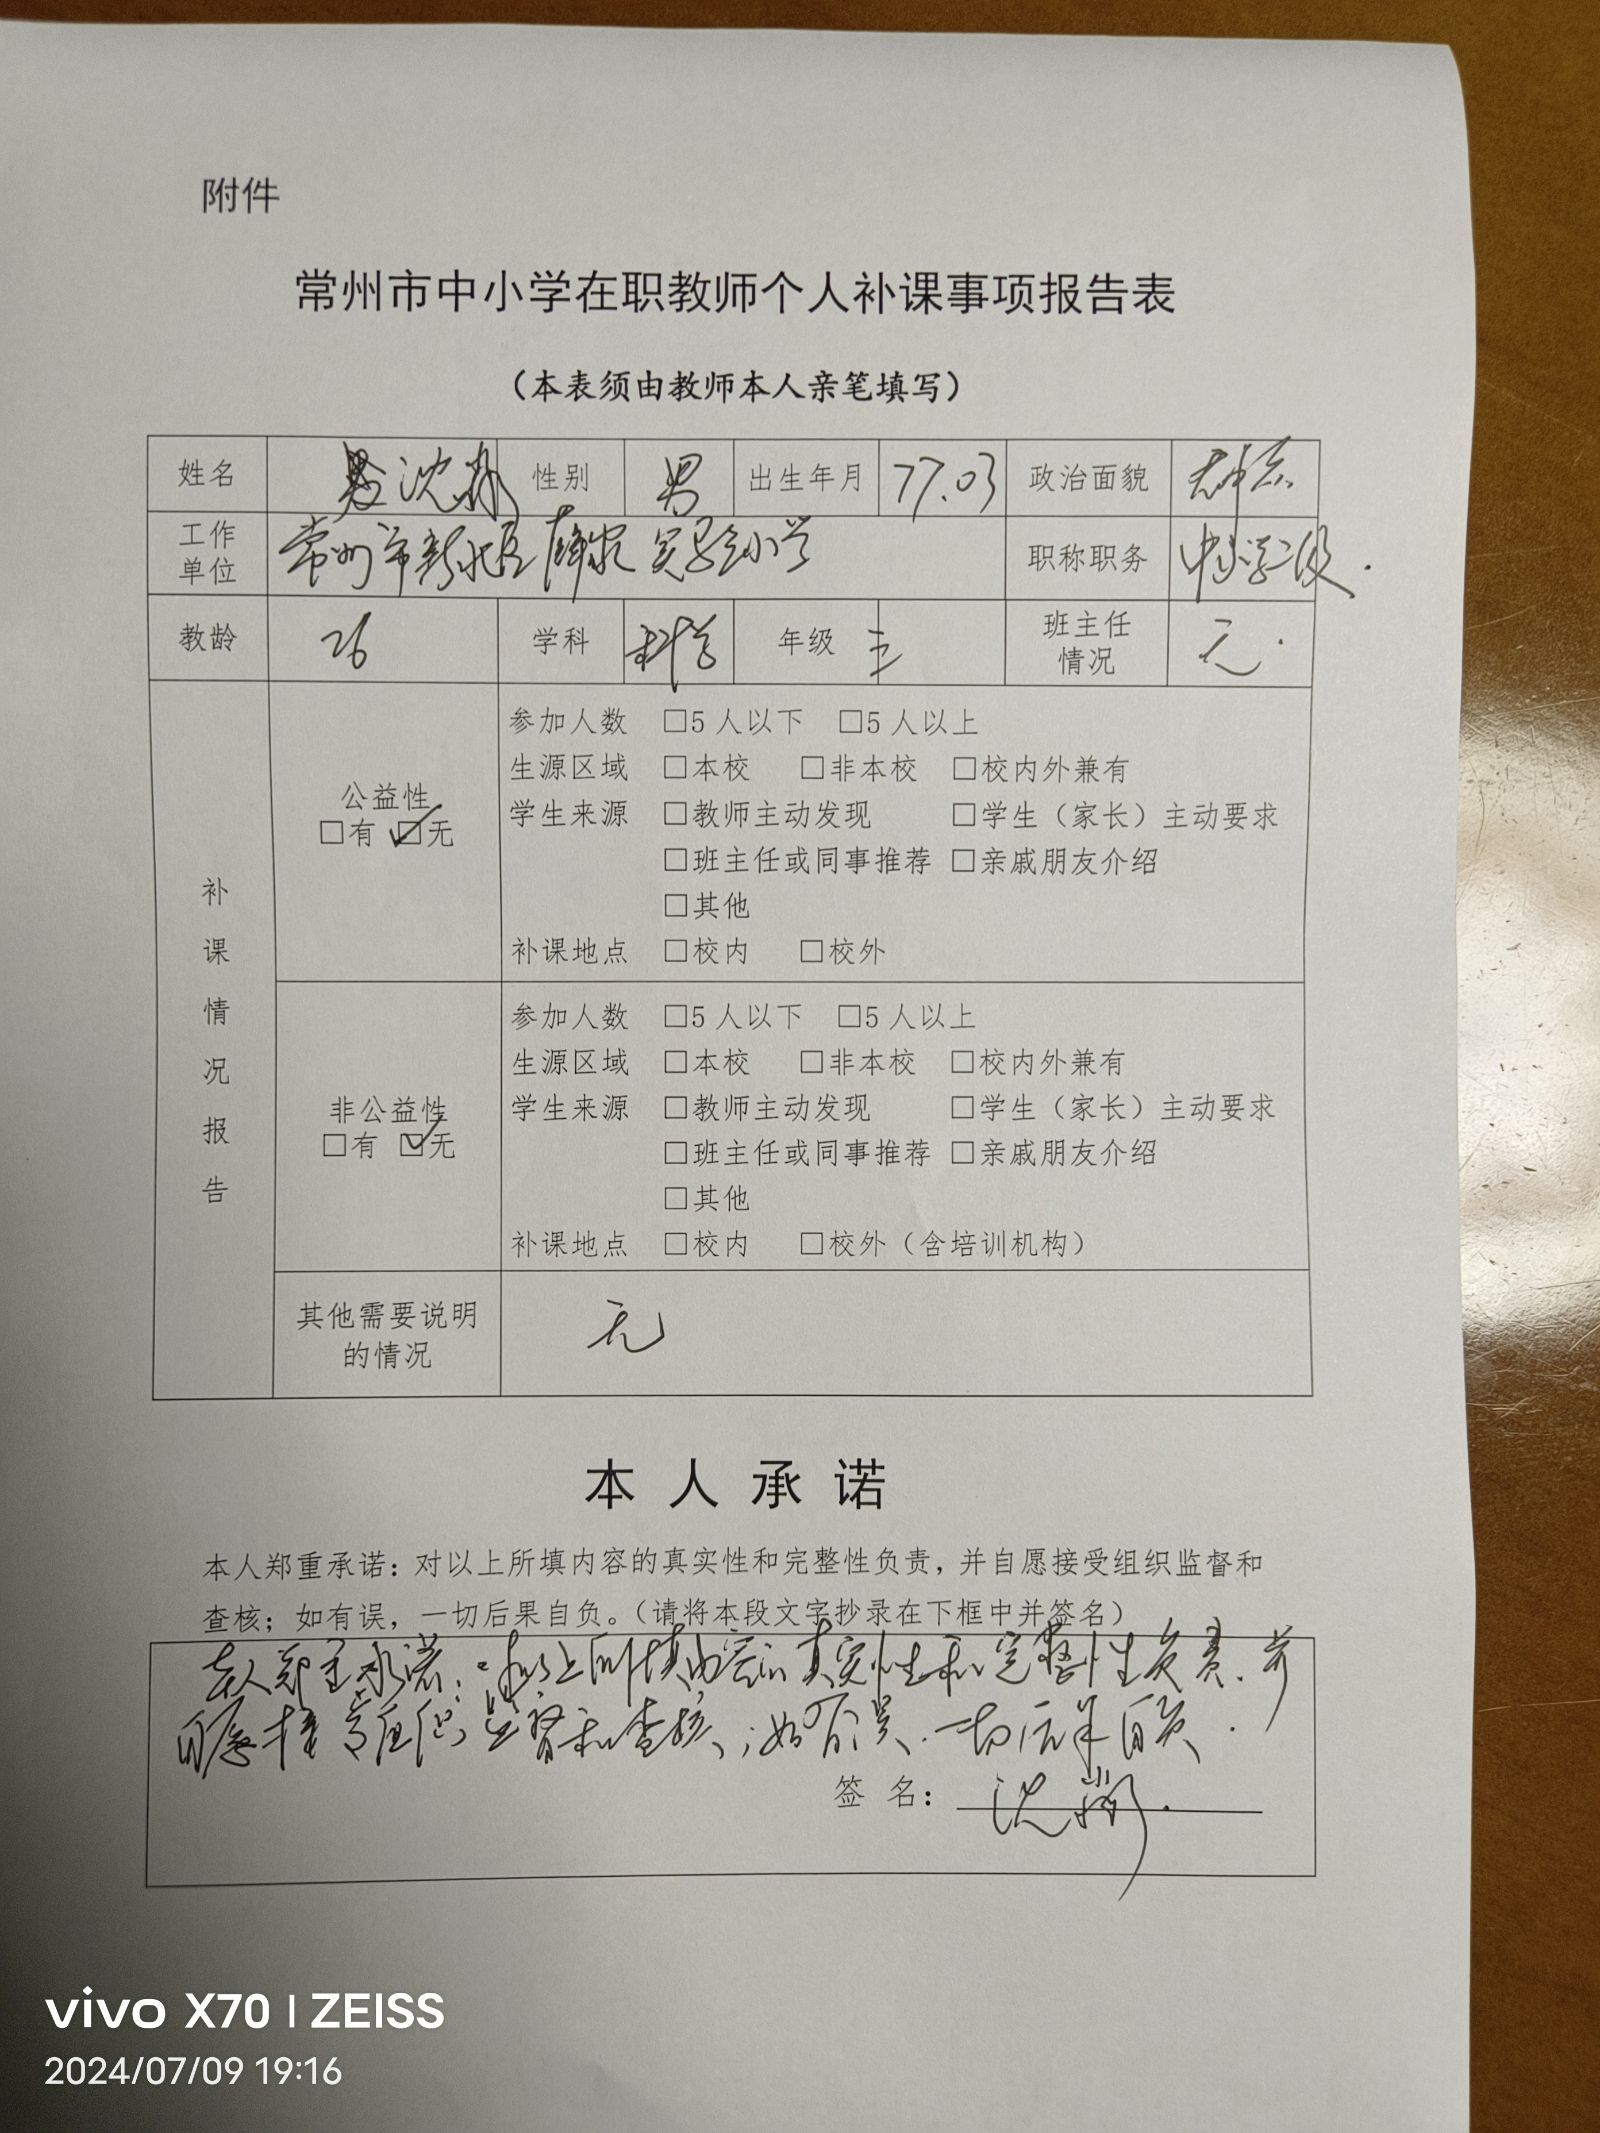 附件
常州市中小学在职教师个人补课事项报告表
（本表须由教师本人亲笔填写）
姓名 沈 性别 男 出生年月 77.03 政治面貌 群众
工作单位 常州市新北区薛家实验小学 职称职务 中小学二级.
教龄 26 学科 科学 年级 三 班主任情况 无.
补课情况报告
公益性
□有 ☑无
参加人数 □5人以下 □5人以上
生源区域 □本校 □非本校 □校内外兼有
学生来源 □教师主动发现 □学生（家长）主动要求
□班主任或同事推荐 □亲戚朋友介绍
□其他
补课地点 □校内 □校外
非公益性
□有 ☑无
参加人数 □5人以下 □5人以上
生源区域 □本校 □非本校 □校内外兼有
学生来源 □教师主动发现 □学生（家长）主动要求
□班主任或同事推荐 □亲戚朋友介绍
□其他
补课地点 □校内 □校外（含培训机构）
其他需要说明的情况 无
本人承诺
本人郑重承诺：对以上所填内容的真实性和完整性负责，并自愿接受组织监督和
查核；如有误，一切后果自负。（请将本段文字抄录在下框中并签名）
本人郑重承诺：对以上所填内容的真实性和完整性负责.并
自愿接受组织监督和查核；如有误.一切后果自负.
签 名： 沈
vivo X70 | ZEISS
2024/07/09 19:16